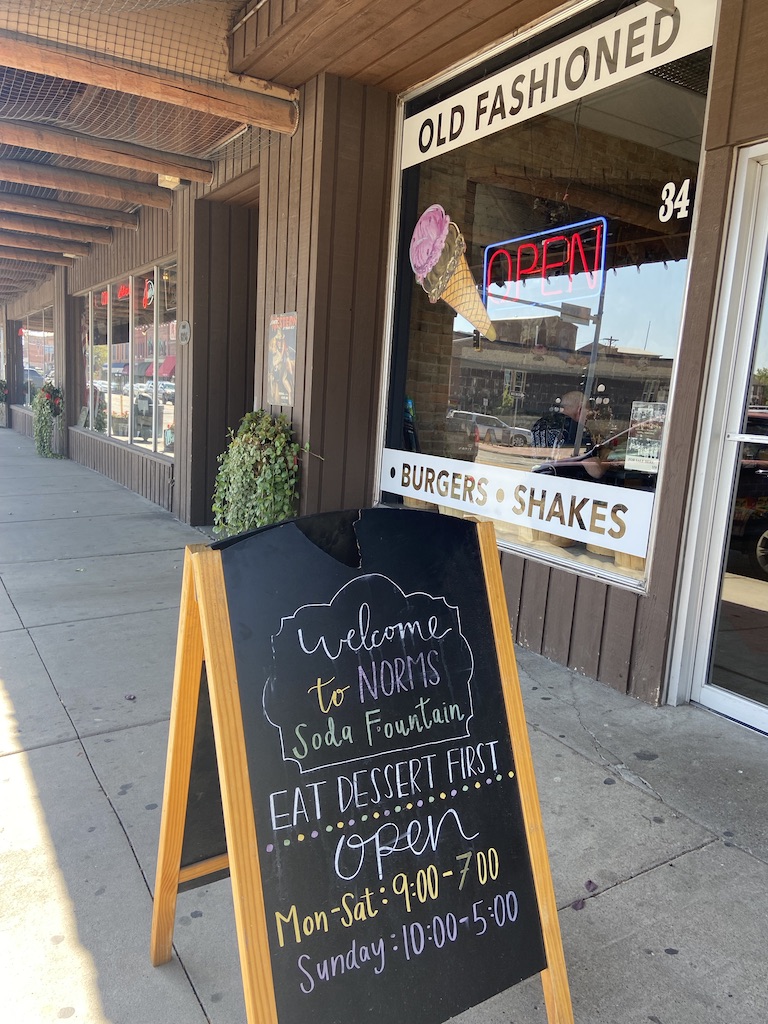 OLD FASHIONED
34
OPEN
• BURGERS • SHAKES
Welcome
to NORMS
Soda Fountain
EAT DESSERT FIRST
open
Mon-Sat: 9:00-7:00
Sunday: 10:00-5:00